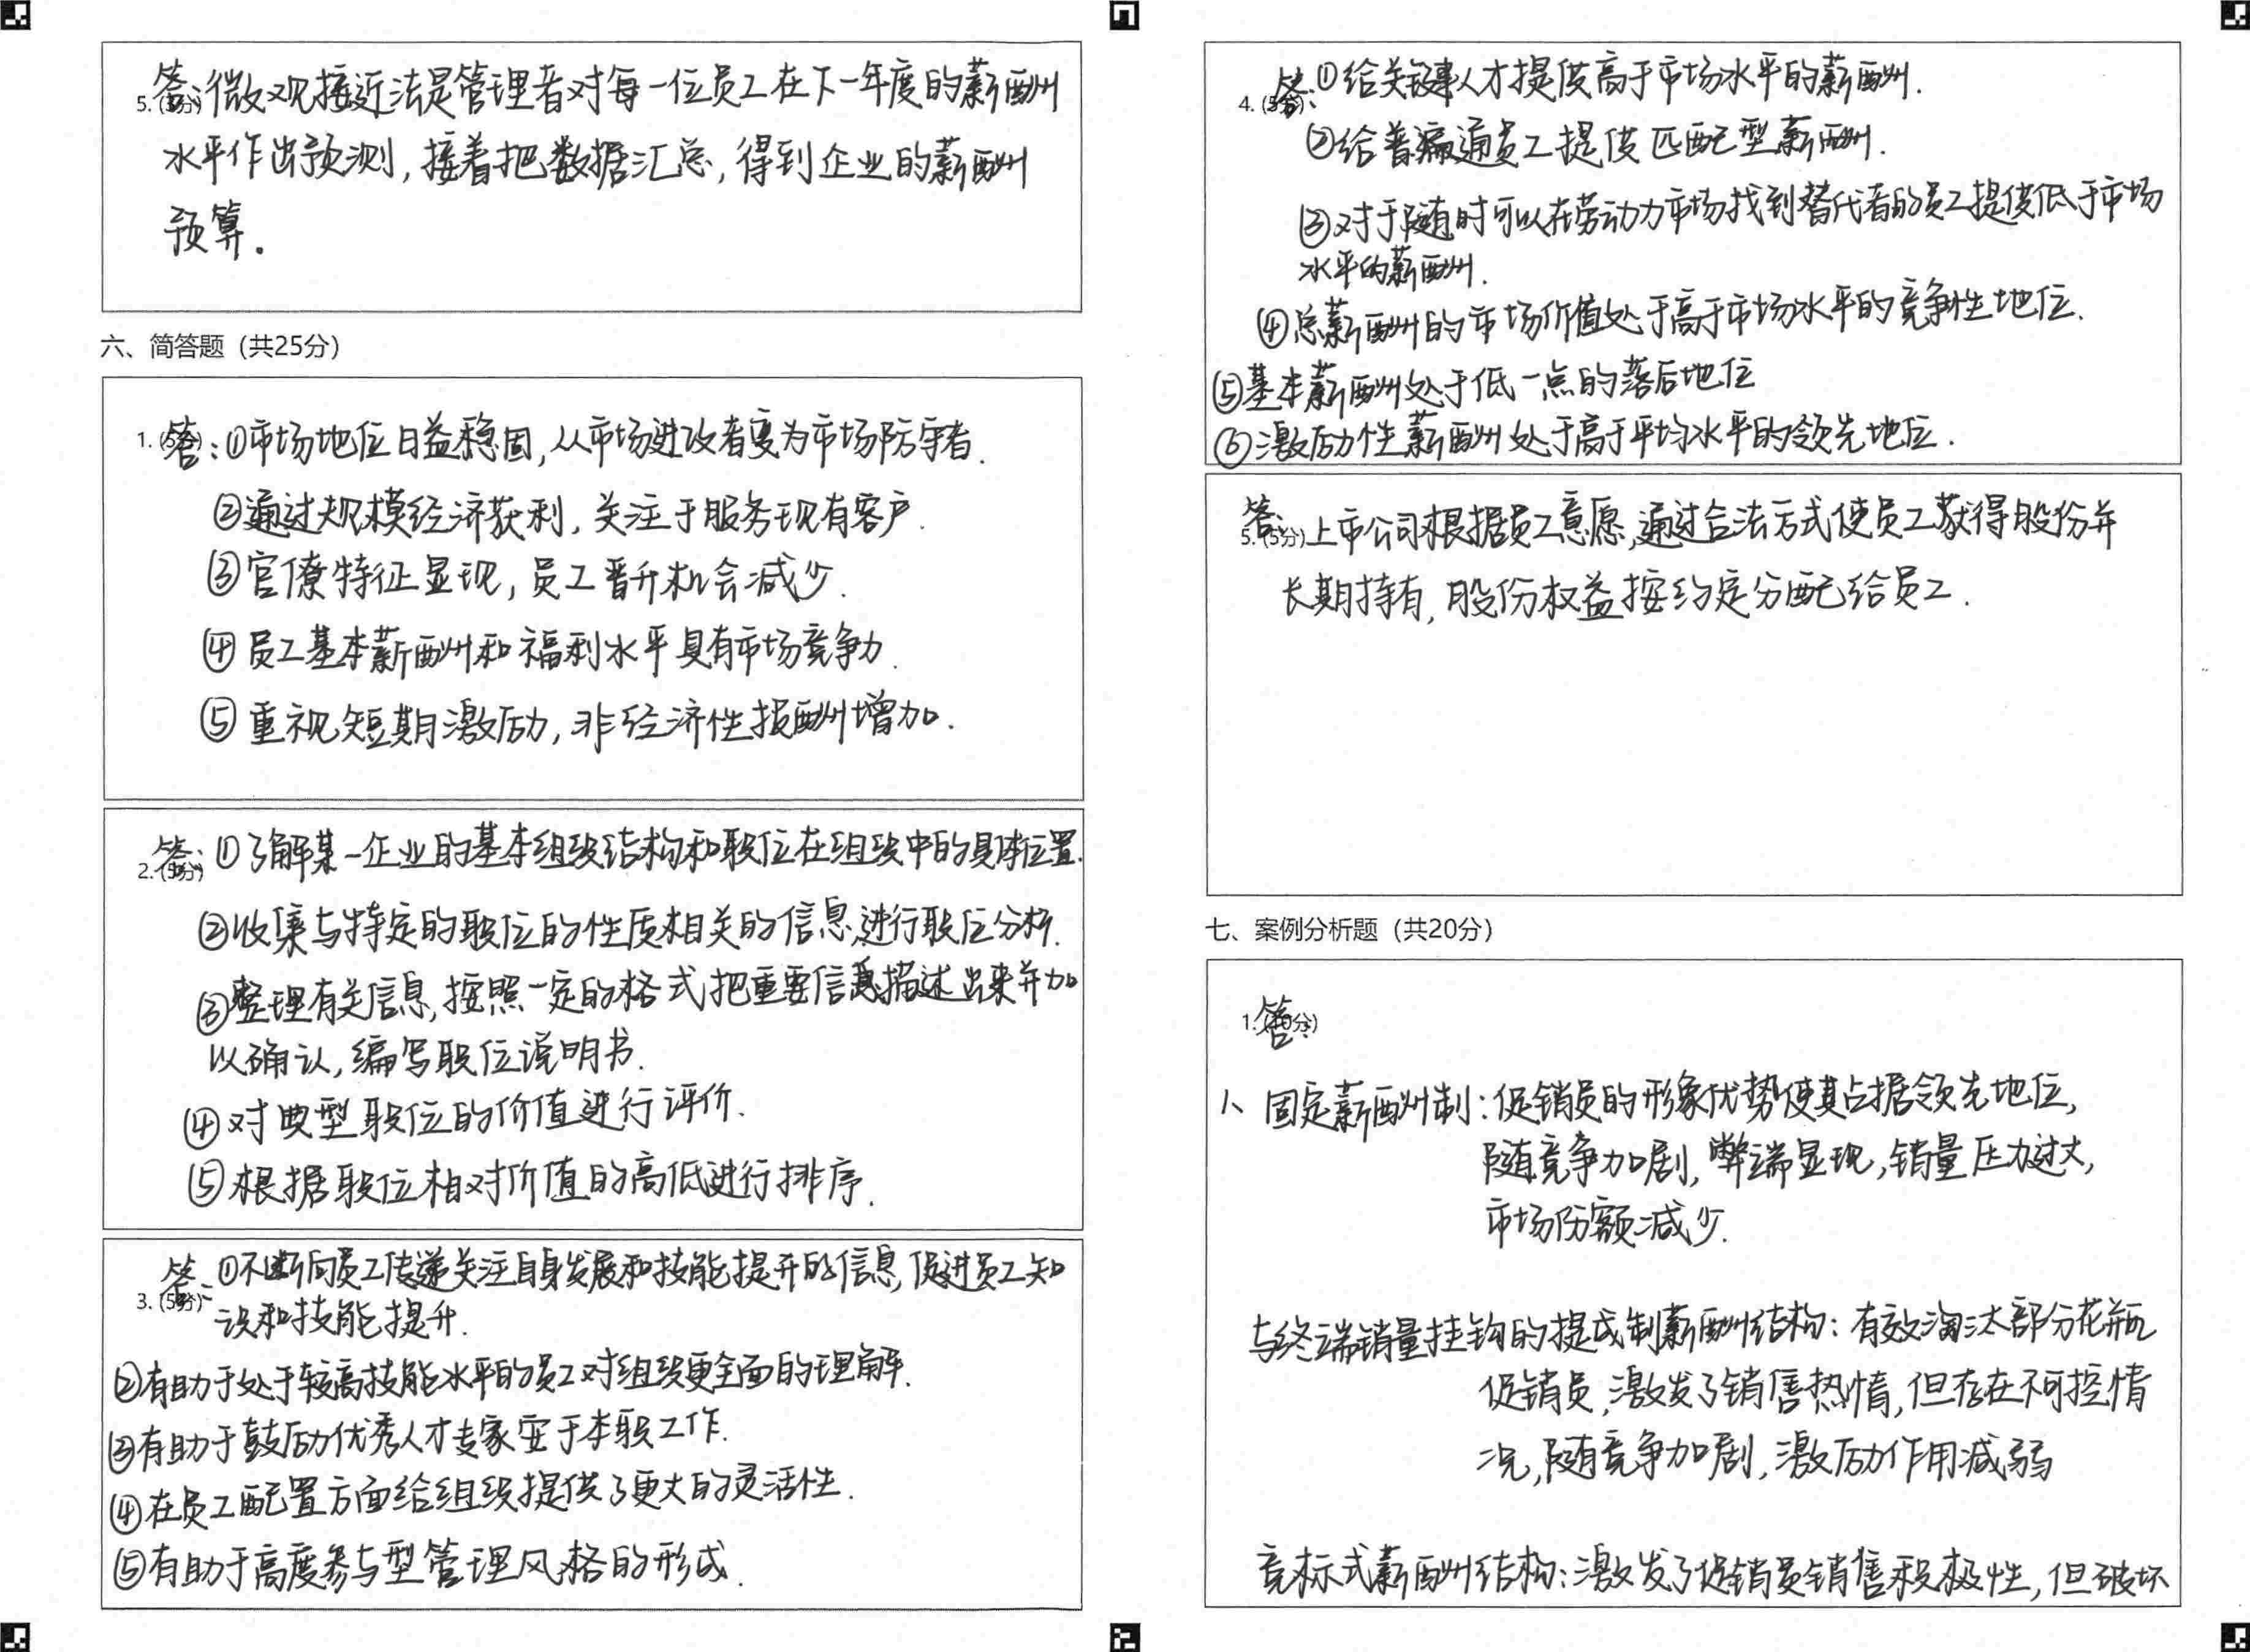 5. (3分)
答：微观接近法是管理者对每一位员工在下一年度的薪酬
水平作出预测，接着把数据汇总，得到企业的薪酬
预算。
六、简答题（共25分）
1. (5分)
答：①市场地位日益稳固，从市场进攻者变为市场防守者.
②通过规模经济获利，关注于服务现有客户.
③官僚特征显现，员工晋升机会减少.
④员工基本薪酬和福利水平具有市场竞争力.
⑤重视短期激励，非经济性报酬增加.
2. (5分)
答：①了解某一企业的基本组织结构和职位在组织中的具体位置.
②收集与特定的职位的性质相关的信息,进行职位分析.
③整理有关信息,按照一定的格式把重要信息描述出来并加
以确认,编写职位说明书.
④对典型职位的价值进行评价.
⑤根据职位相对价值的高低进行排序.
3. (5分)
答：①不断向员工传递关注自身发展和技能提升的信息,促进员工知
识和技能提升.
②有助于处于较高技能水平的员工对组织更全面的理解.
③有助于鼓励优秀人才专家安于本职工作.
④在员工配置方面给组织提供了更大的灵活性.
⑤有助于高度参与型管理风格的形成.
4. (5分)
答：①给关键人才提供高于市场水平的薪酬.
②给普遍通员工提供匹配型薪酬.
③对于随时可以在劳动力市场找到替代者的员工提供低于市场
水平的薪酬.
④总薪酬的市场价值处于高于市场水平的竞争性地位.
⑤基本薪酬处于低一点的落后地位
⑥激励性薪酬处于高于平均水平的领先地位.
5. (5分)
答：上市公司根据员工意愿,通过合法方式使员工获得股份并
长期持有,股份权益按约定分配给员工.
七、案例分析题（共20分）
1. (10分)
答：
1、固定薪酬制：促销员的形象优势使其占据领先地位,
随竞争加剧,弊端显现,销量压力过大,
市场份额减少.
与终端销量挂钩的提成制薪酬结构：有效淘汰部分花瓶
促销员,激发了销售热情,但存在不可控情
况,随竞争加剧,激励作用减弱
竞标式薪酬结构：激发了促销员销售积极性,但破坏